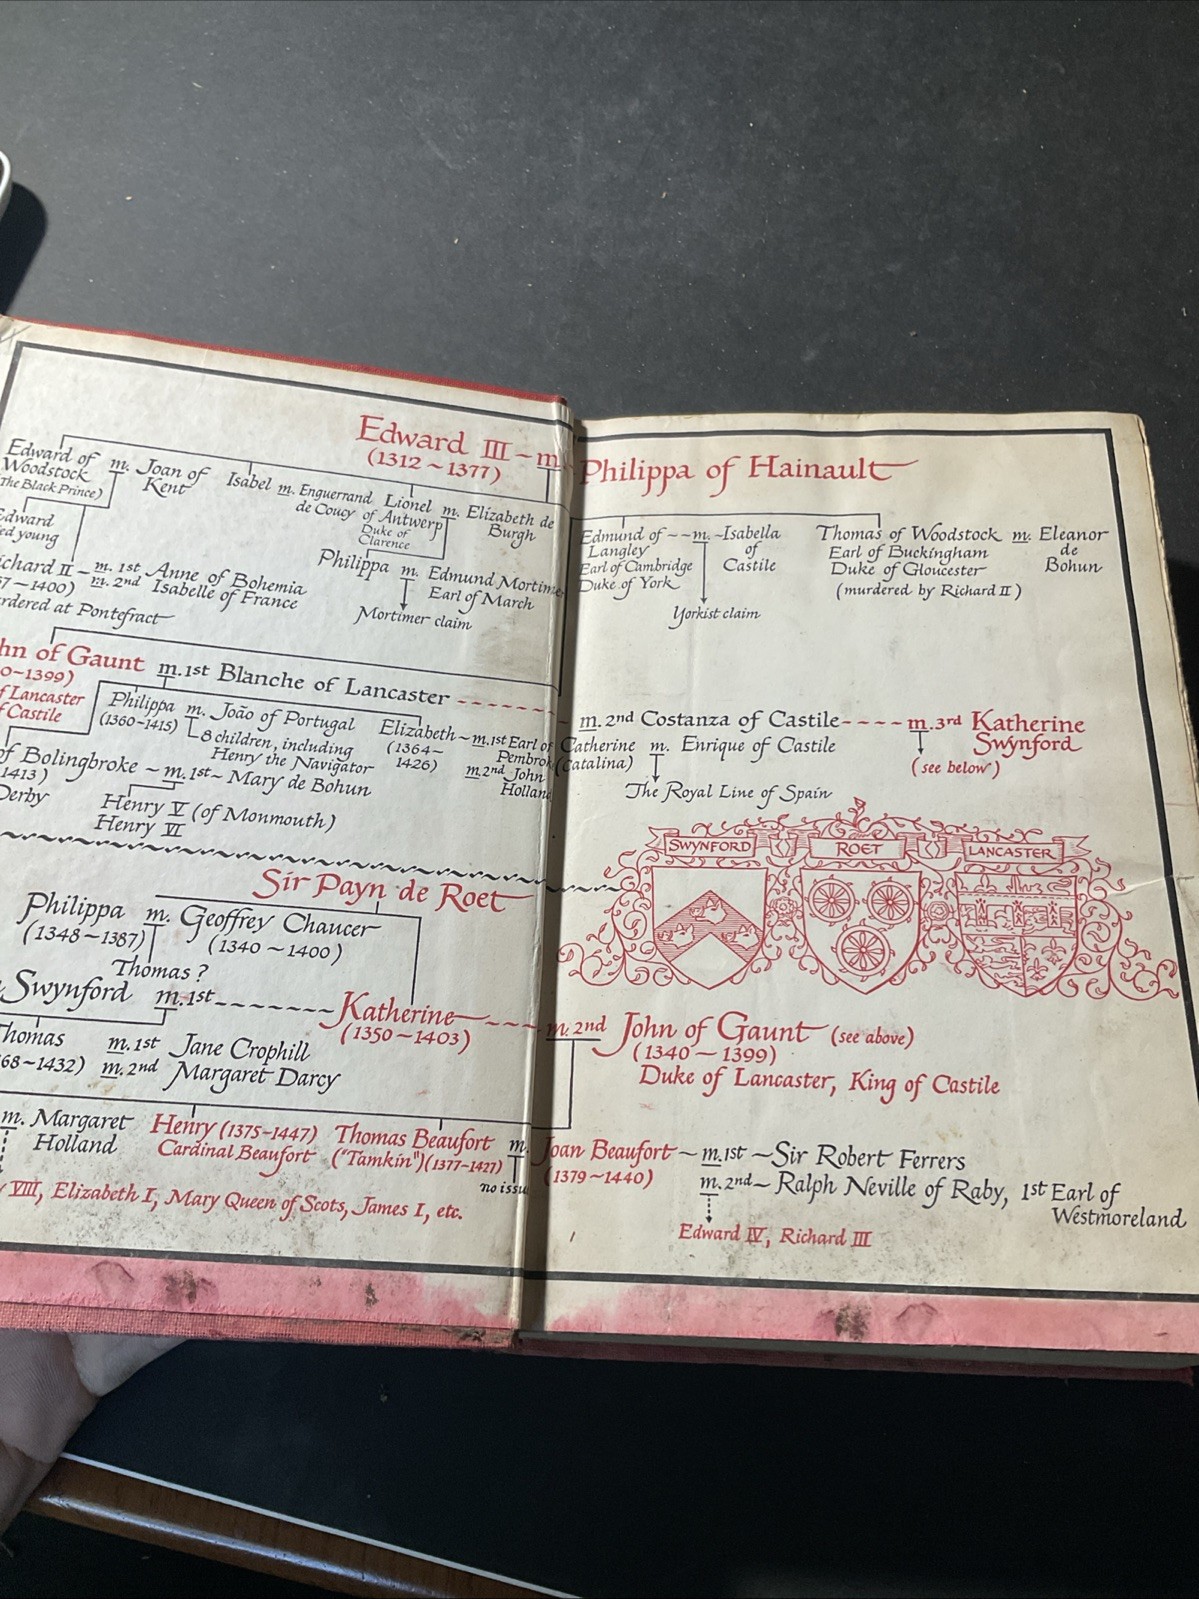 Edward III ~ m. Philippa of Hainault
(1312 ~ 1377)
Edward of Woodstock m. Joan of Kent
The Black Prince)
Edward
young
Isabel m. Enguerrand de Coucy
Lionel of Antwerp m. Elizabeth de Burgh
Duke of Clarence
Philippa m. Edmund Mortimer
Earl of March
Mortimer claim
Richard II - m. 1st Anne of Bohemia
m. 2nd Isabelle of France
1400)
at Pontefract
Edmund of Langley - - m. - Isabella of Castile
Earl of Cambridge
Duke of York
Yorkist claim
Thomas of Woodstock m. Eleanor de Bohun
Earl of Buckingham
Duke of Gloucester
(murdered by Richard II)
John of Gaunt m. 1st Blanche of Lancaster
1399)
of Lancaster
of Castile
m. 2nd Costanza of Castile - - - - m. 3rd Katherine Swynford
(see below)
Philippa m. João of Portugal
(1360-1415)
8 children, including
Henry the Navigator
Elizabeth ~ m. 1st Earl of Pembroke
(1364~1426)
m. 2nd John Holland
Catherine m. Enrique of Castile
(Catalina)
The Royal Line of Spain
of Bolingbroke ~ m. 1st ~ Mary de Bohun
1413)
Derby
Henry V (of Monmouth)
Henry VI
SWYNFORD ROET LANCASTER
Sir Payn de Roet
Philippa m. Geoffrey Chaucer
(1348~1387)
(1340 ~ 1400)
Thomas ?
Swynford m. 1st - - - - - - Katherine - - - m. 2nd John of Gaunt (see above)
(1350~1403)
(1340 ~ 1399)
Duke of Lancaster, King of Castile
Thomas m. 1st Jane Crophill
68~1432) m. 2nd Margaret Darcy
m. Margaret Holland
Henry (1375-1447)
Cardinal Beaufort
Thomas Beaufort m.
("Tamkin") (1377-1427)
no issue
Joan Beaufort ~ m. 1st ~ Sir Robert Ferrers
(1379~1440)
m. 2nd ~ Ralph Neville of Raby, 1st Earl of
Westmoreland
VIII, Elizabeth I, Mary Queen of Scots, James I, etc.
Edward IV, Richard III